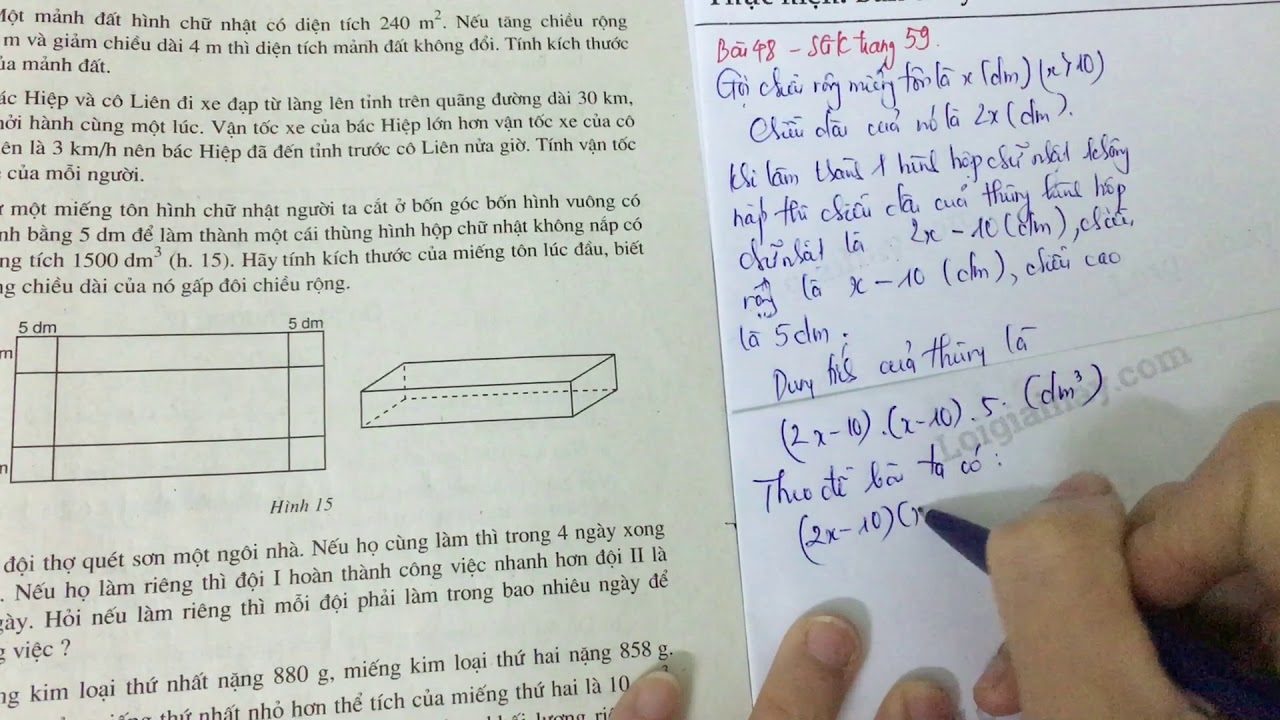 Một mảnh đất hình chữ nhật có diện tích 240 m². Nếu tăng chiều rộng
m và giảm chiều dài 4 m thì diện tích mảnh đất không đổi. Tính kích thước
ủa mảnh đất.
ác Hiệp và cô Liên đi xe đạp từ làng lên tỉnh trên quãng đường dài 30 km,
hởi hành cùng một lúc. Vận tốc xe của bác Hiệp lớn hơn vận tốc xe của cô
ên là 3 km/h nên bác Hiệp đã đến tỉnh trước cô Liên nửa giờ. Tính vận tốc
của mỗi người.
một miếng tôn hình chữ nhật người ta cắt ở bốn góc bốn hình vuông có
nh bằng 5 dm để làm thành một cái thùng hình hộp chữ nhật không nắp có
ng tích 1500 dm³ (h. 15). Hãy tính kích thước của miếng tôn lúc đầu, biết
ng chiều dài của nó gấp đôi chiều rộng.
5 dm
5 dm
m
n
Hình 15
đội thợ quét sơn một ngôi nhà. Nếu họ cùng làm thì trong 4 ngày xong
. Nếu họ làm riêng thì đội I hoàn thành công việc nhanh hơn đội II là
gày. Hỏi nếu làm riêng thì mỗi đội phải làm trong bao nhiêu ngày để
g việc ?
ng kim loại thứ nhất nặng 880 g, miếng kim loại thứ hai nặng 858 g.
thứ nhất nhỏ hơn thể tích của miếng thứ hai là 10
Bài 48 – SGK trang 59.
Gọi chiều rộng miếng tôn là x (dm) (x > 10)
Chiều dài của nó là 2x (dm).
Khi làm thành 1 hình hộp chữ nhật không
nắp thì chiều dài của thùng hình hộp
chữ nhật là 2x – 10 (dm), chiều
rộng là x – 10 (dm), chiều cao
là 5dm.
Dung tích của thùng là
(2x – 10).(x – 10).5. (dm³)
Theo đề bài ta có:
(2x – 10)(x
Loigiaihay.com